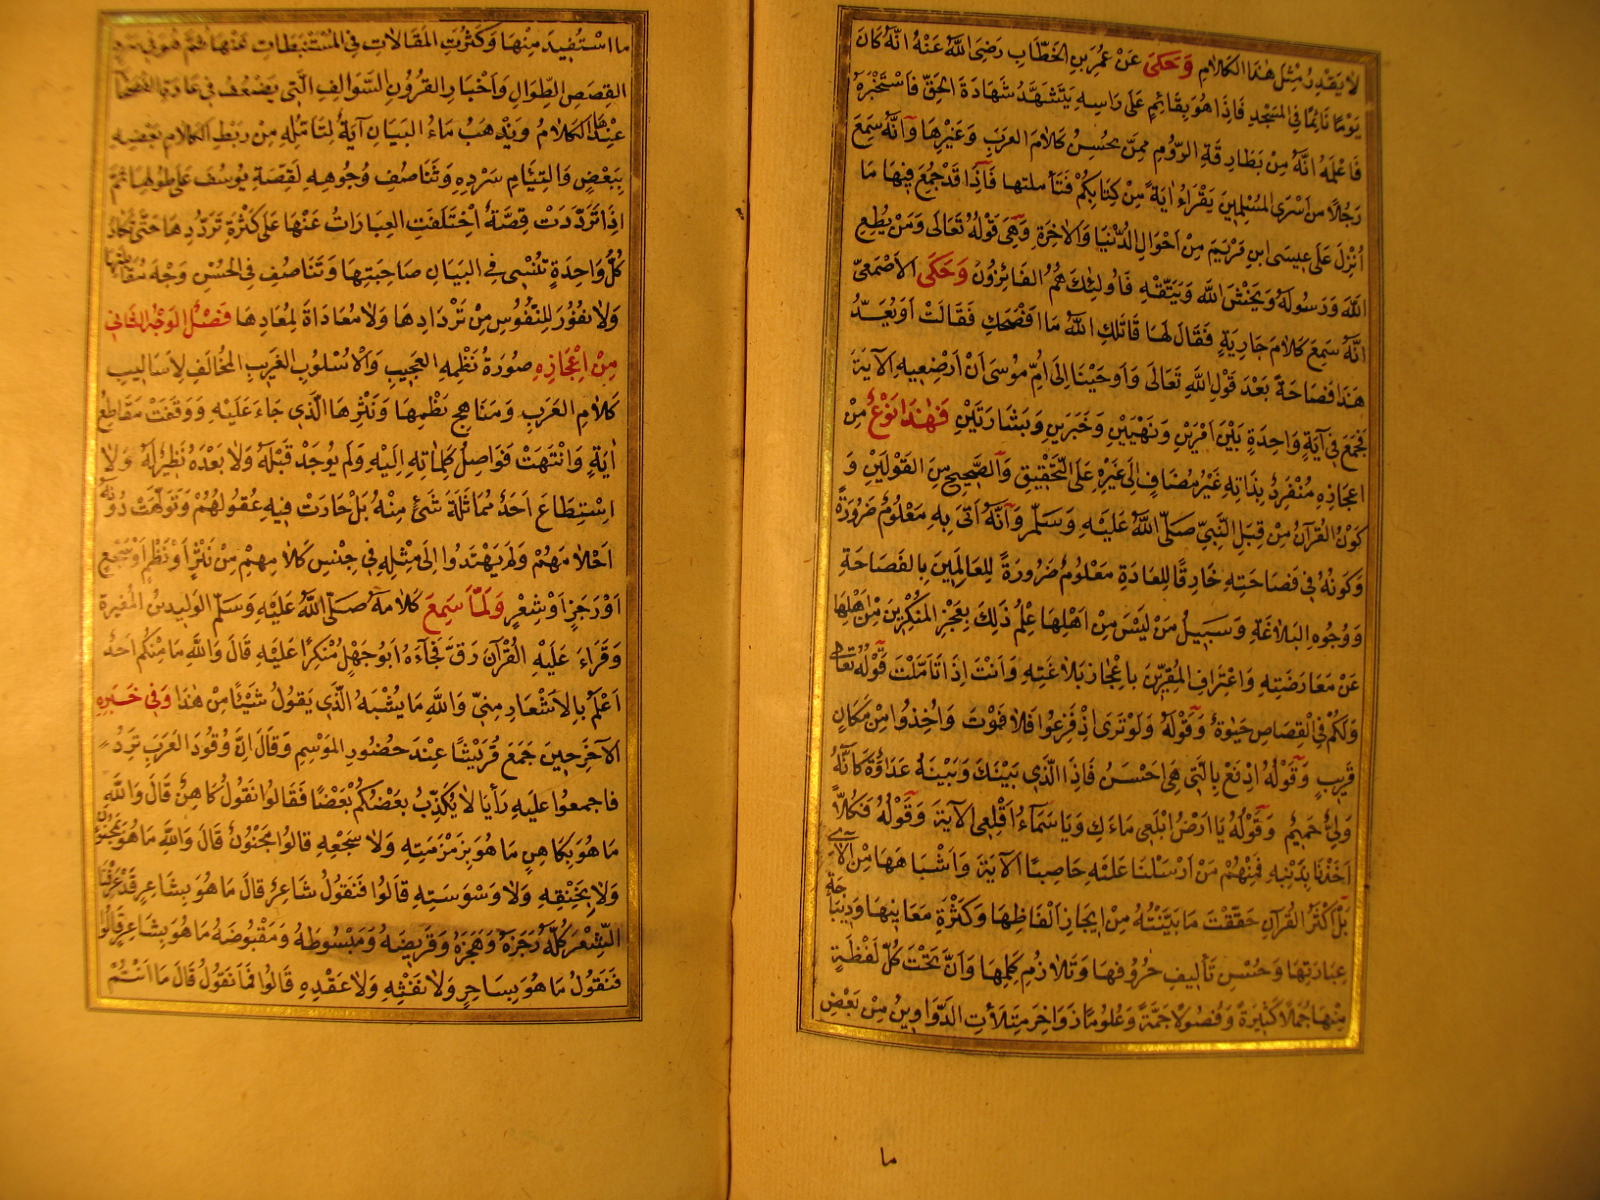 لا يقدر مثل هذا الكلام وحكى عن عمر بن الخطاب رضى الله عنه انه كان
يوما نائما فى المسجد فاذا هو بقائم على راسه يتشهد شهادة الحق فاستخبره
فاعلمه انه من بطارقة الروم ممن يحسن كلام العرب وغيرها وانه سمع
رجلا من اسرى المسلمين يقراء اية من كتابكم فتأملتها فاذا قد جمع فيها ما
انزل على عيسى ابن مريم من احوال الدنيا والاخرة وهى قوله تعالى ومن يطع
الله ورسوله ويخش الله ويتقه فاولئك هم الفائزون وحكى الاصمعى
انه سمع كلام جارية فقال لها قاتلك الله ما افصحك فقالت او يعد
هذا فصاحة بعد قول الله تعالى واوحينا الى ام موسى ان ارضعيه الآية
فجمع فى آية واحدة بين امرين ونهيين وخبرين وبشارتين فهذا نوع من
اعجازه منفرد بذاته غير مضاف الى غيره على التحقيق والصحيح من القولين و
كون القرآن من قبل النبى صلى الله عليه وسلم وانه اتى به معلوم ضرورة
وكونه فى فصاحته خارقا للعادة معلوم ضرورة للعالمين بالفصاحة
ووجوه البلاغة وسبيل من ليس من اهلها علم ذلك بعجز المنكرين من اهلها
عن معارضته واعتراف المقرين باعجاز بلاغته وانت اذا تأملت قوله تعالى
ولكم فى القصاص حيوة وقوله ولو ترى اذ فزعوا فلا فوت واخذوا من مكان
قريب وقوله ادفع بالتى هى احسن فاذا الذى بينك وبينه عداوة كانه
ولى حميم وقوله يا ارض ابلعى ماءك ويا سماء اقلعى الآية وقوله فكلا
اخذنا بذنبه فمنهم من ارسلنا عليه حاصبا الآية واشباهها من الآى
بل اكثر القرآن حققت ما بينته من ايجاز الفاظها وكثرة معانيها وديباجة
عبارتها وحسن تأليف حروفها وتلاؤم كلمها وان تحت كل لفظة
منها جملا كثيرة وفصولا جمة وعلوما زواخر متلأت الدواوين من بعض
ما
ما استفيد منها وكثرت المقالات فى المستنبطات عنها ثم هو فى سرد
القصص الطوال واخبار القرون السوالف التى يضعف فى عادة الفصحا
عندها الكلام ويذهب ماء البيان آية لتأمله من ربط الكلام بعضه
ببعض والتيام سرده وتناصف وجوهه لقصة يوسف على طولها ثم
اذا ترددت قصة اختلفت العبارات عنها على كثرة ترددها حتى تكاد
كل واحدة تنسى فى البيان صاحبتها وتناصف فى الحسن وجه مقابلتها
ولا نفور للنفوس من تردادها ولا معاداة لمعادها فصل الوجه الثانى
من اعجازه صورة نظمه العجيب والاسلوب الغريب المخالف لاساليب
كلام العرب ومناهج نظمها ونثرها الذى جاء عليه ووقفت مقاطع
اية وانتهت فواصل كلماته اليه ولم يوجد قبله ولا بعده نظير له ولا
استطاع احد مماثلة شئ منه بل حارت فيه عقولهم وتولهت دونه
احلامهم ولم يهتدوا الى مثله فى جنس كلامهم من نثر او نظم او سجع
او رجز او شعر ولما سمع كلامه صلى الله عليه وسلم الوليد بن المغيرة
وقراء عليه القرآن رق فجآءه ابو جهل منكرا عليه قال والله ما منكم احد
اعلم بالاشعار منى والله ما يشبه الذى يقول شيئا من هذا وفى خبره
الآخر حين جمع قريشا عند حضور الموسم وقال ان وفود العرب ترد
فاجمعوا عليه رأيا لا يكذب بعضكم بعضا فقالوا نقول كاهن قال والله
ما هو بكاهن ما هو بزمزمته ولا سجعه قالوا مجنون قال والله ما هو بمجنون
ولا بخنقه ولا وسوسته قالوا فنقول شاعر قال ما هو بشاعر قد عرفنا
الشعر كله رجزه وهجزه وقريضه ومبسوطه ومقبوضه ما هو بشاعر قالوا
فنقول ما هو بساحر ولا نفثه ولا عقده قالوا فما نقول قال ما انتم